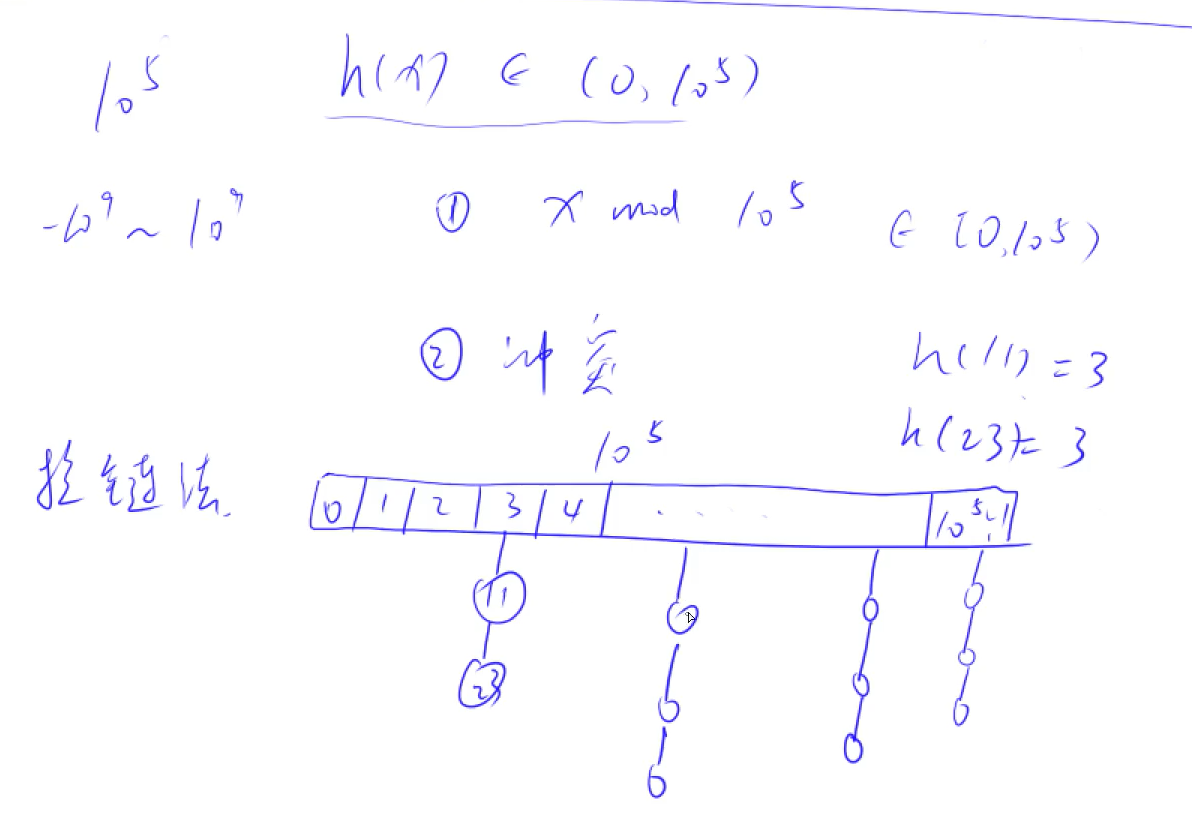 10⁵ h(x) ∈ (0, 10⁵)
-10⁹ ~ 10⁹ ① x mod 10⁵ ∈ [0, 10⁵)
② 冲突 h(11) = 3
10⁵ h(23) = 3
拉链法.
0 1 2 3 4 ..... 10⁵-1
11
23